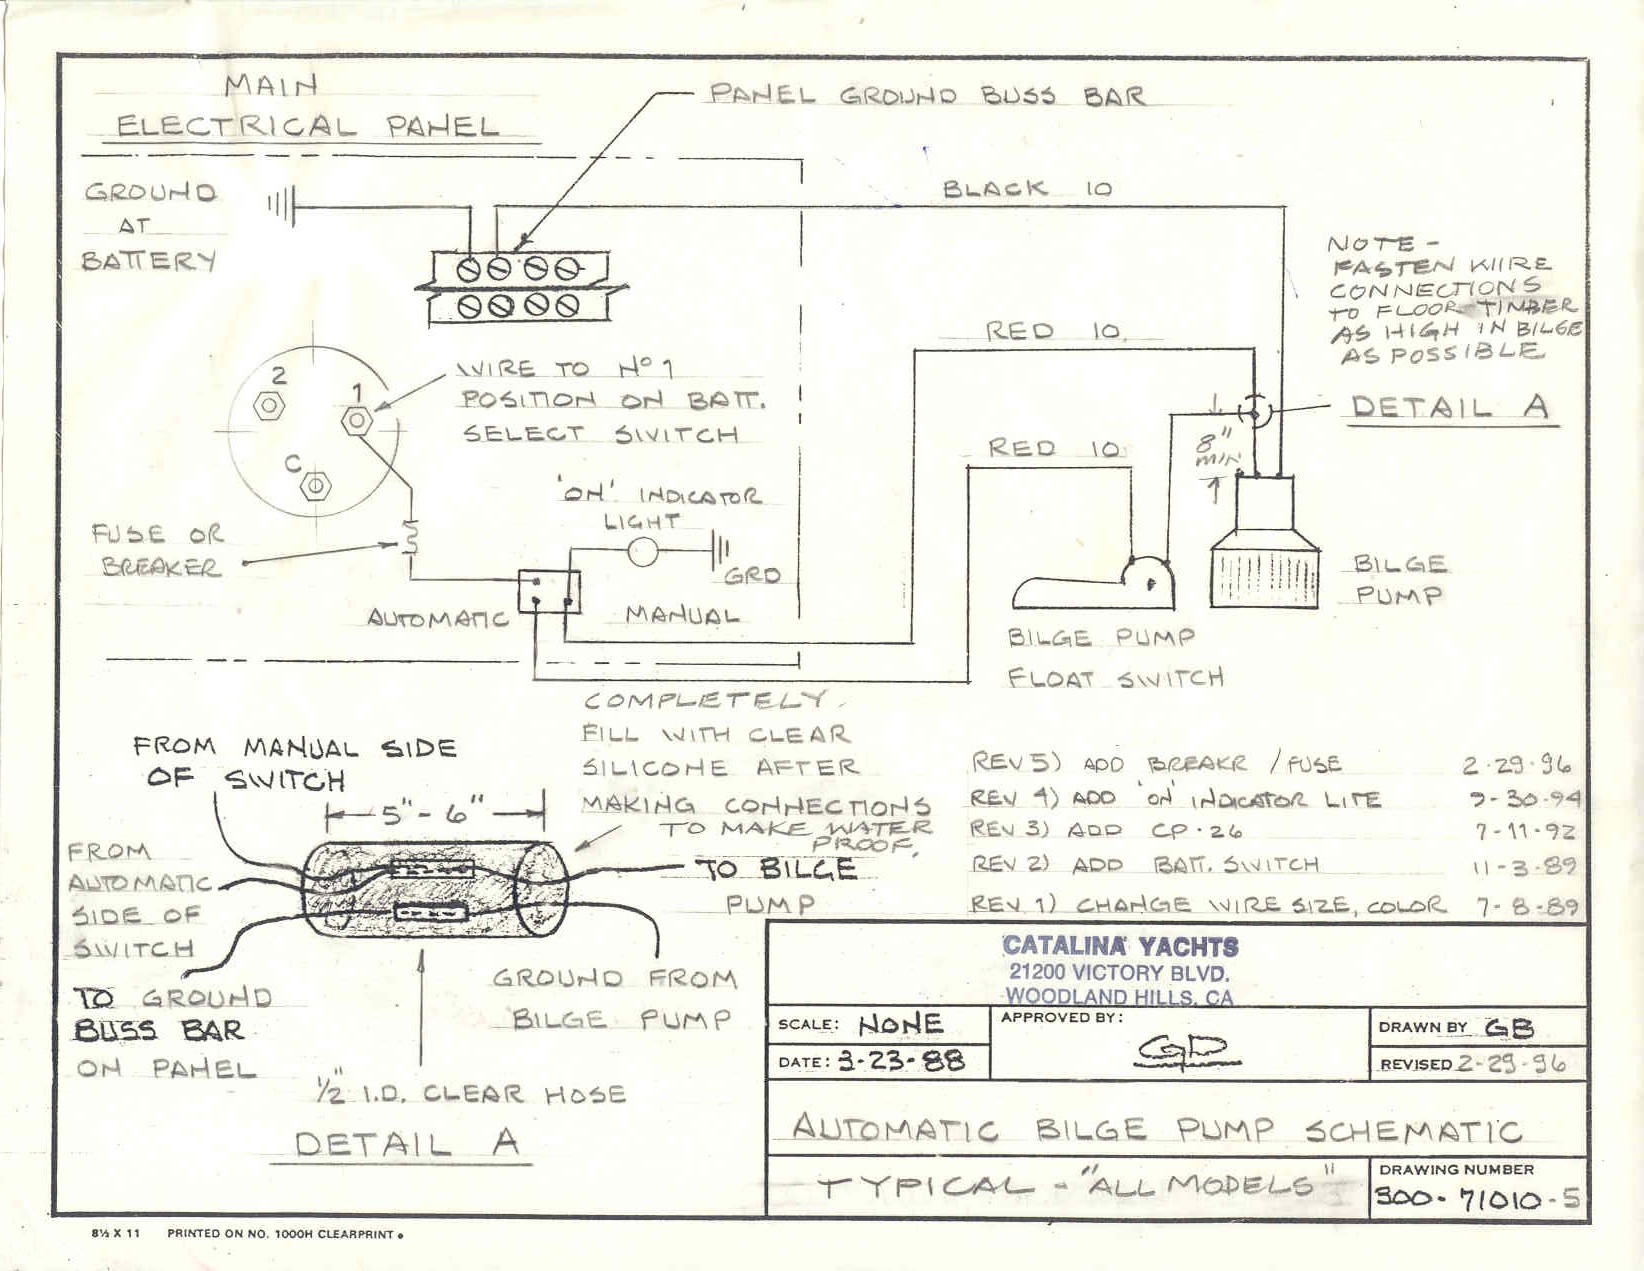 MAIN
ELECTRICAL PANEL
PANEL GROUND BUSS BAR
GROUND
AT
BATTERY
BLACK 10
NOTE -
FASTEN WIRE
CONNECTIONS
TO FLOOR TIMBER
AS HIGH IN BILGE
AS POSSIBLE
RED 10
2
1
C
WIRE TO Nº 1
POSITION ON BATT.
SELECT SWITCH
DETAIL A
8"
MIN
RED 10
'ON' INDICATOR
LIGHT
GRD
FUSE OR
BREAKER
AUTOMATIC
MANUAL
BILGE
PUMP
BILGE PUMP
FLOAT SWITCH
COMPLETELY
FILL WITH CLEAR
SILICONE AFTER
MAKING CONNECTIONS
TO MAKE WATER
PROOF.
FROM MANUAL SIDE
OF SWITCH
5" - 6"
FROM
AUTOMATIC
SIDE OF
SWITCH
TO BILGE
PUMP
TO GROUND
BUSS BAR
ON PANEL
GROUND FROM
BILGE PUMP
1/2" I.D. CLEAR HOSE
DETAIL A
REV 5) ADD BREAKR / FUSE 2-29-96
REV 4) ADD 'ON' INDICATOR LITE 9-30-94
REV 3) ADD CP-26 7-11-92
REV 2) ADD BATT. SWITCH 11-3-89
REV 1) CHANGE WIRE SIZE, COLOR 7-8-89
CATALINA YACHTS
21200 VICTORY BLVD.
WOODLAND HILLS, CA
SCALE: NONE
APPROVED BY: GD
DRAWN BY GB
DATE: 3-23-88
REVISED 2-29-96
AUTOMATIC BILGE PUMP SCHEMATIC
TYPICAL - "ALL MODELS"
DRAWING NUMBER
300-71010-5
8½ X 11 PRINTED ON NO. 1000H CLEARPRINT